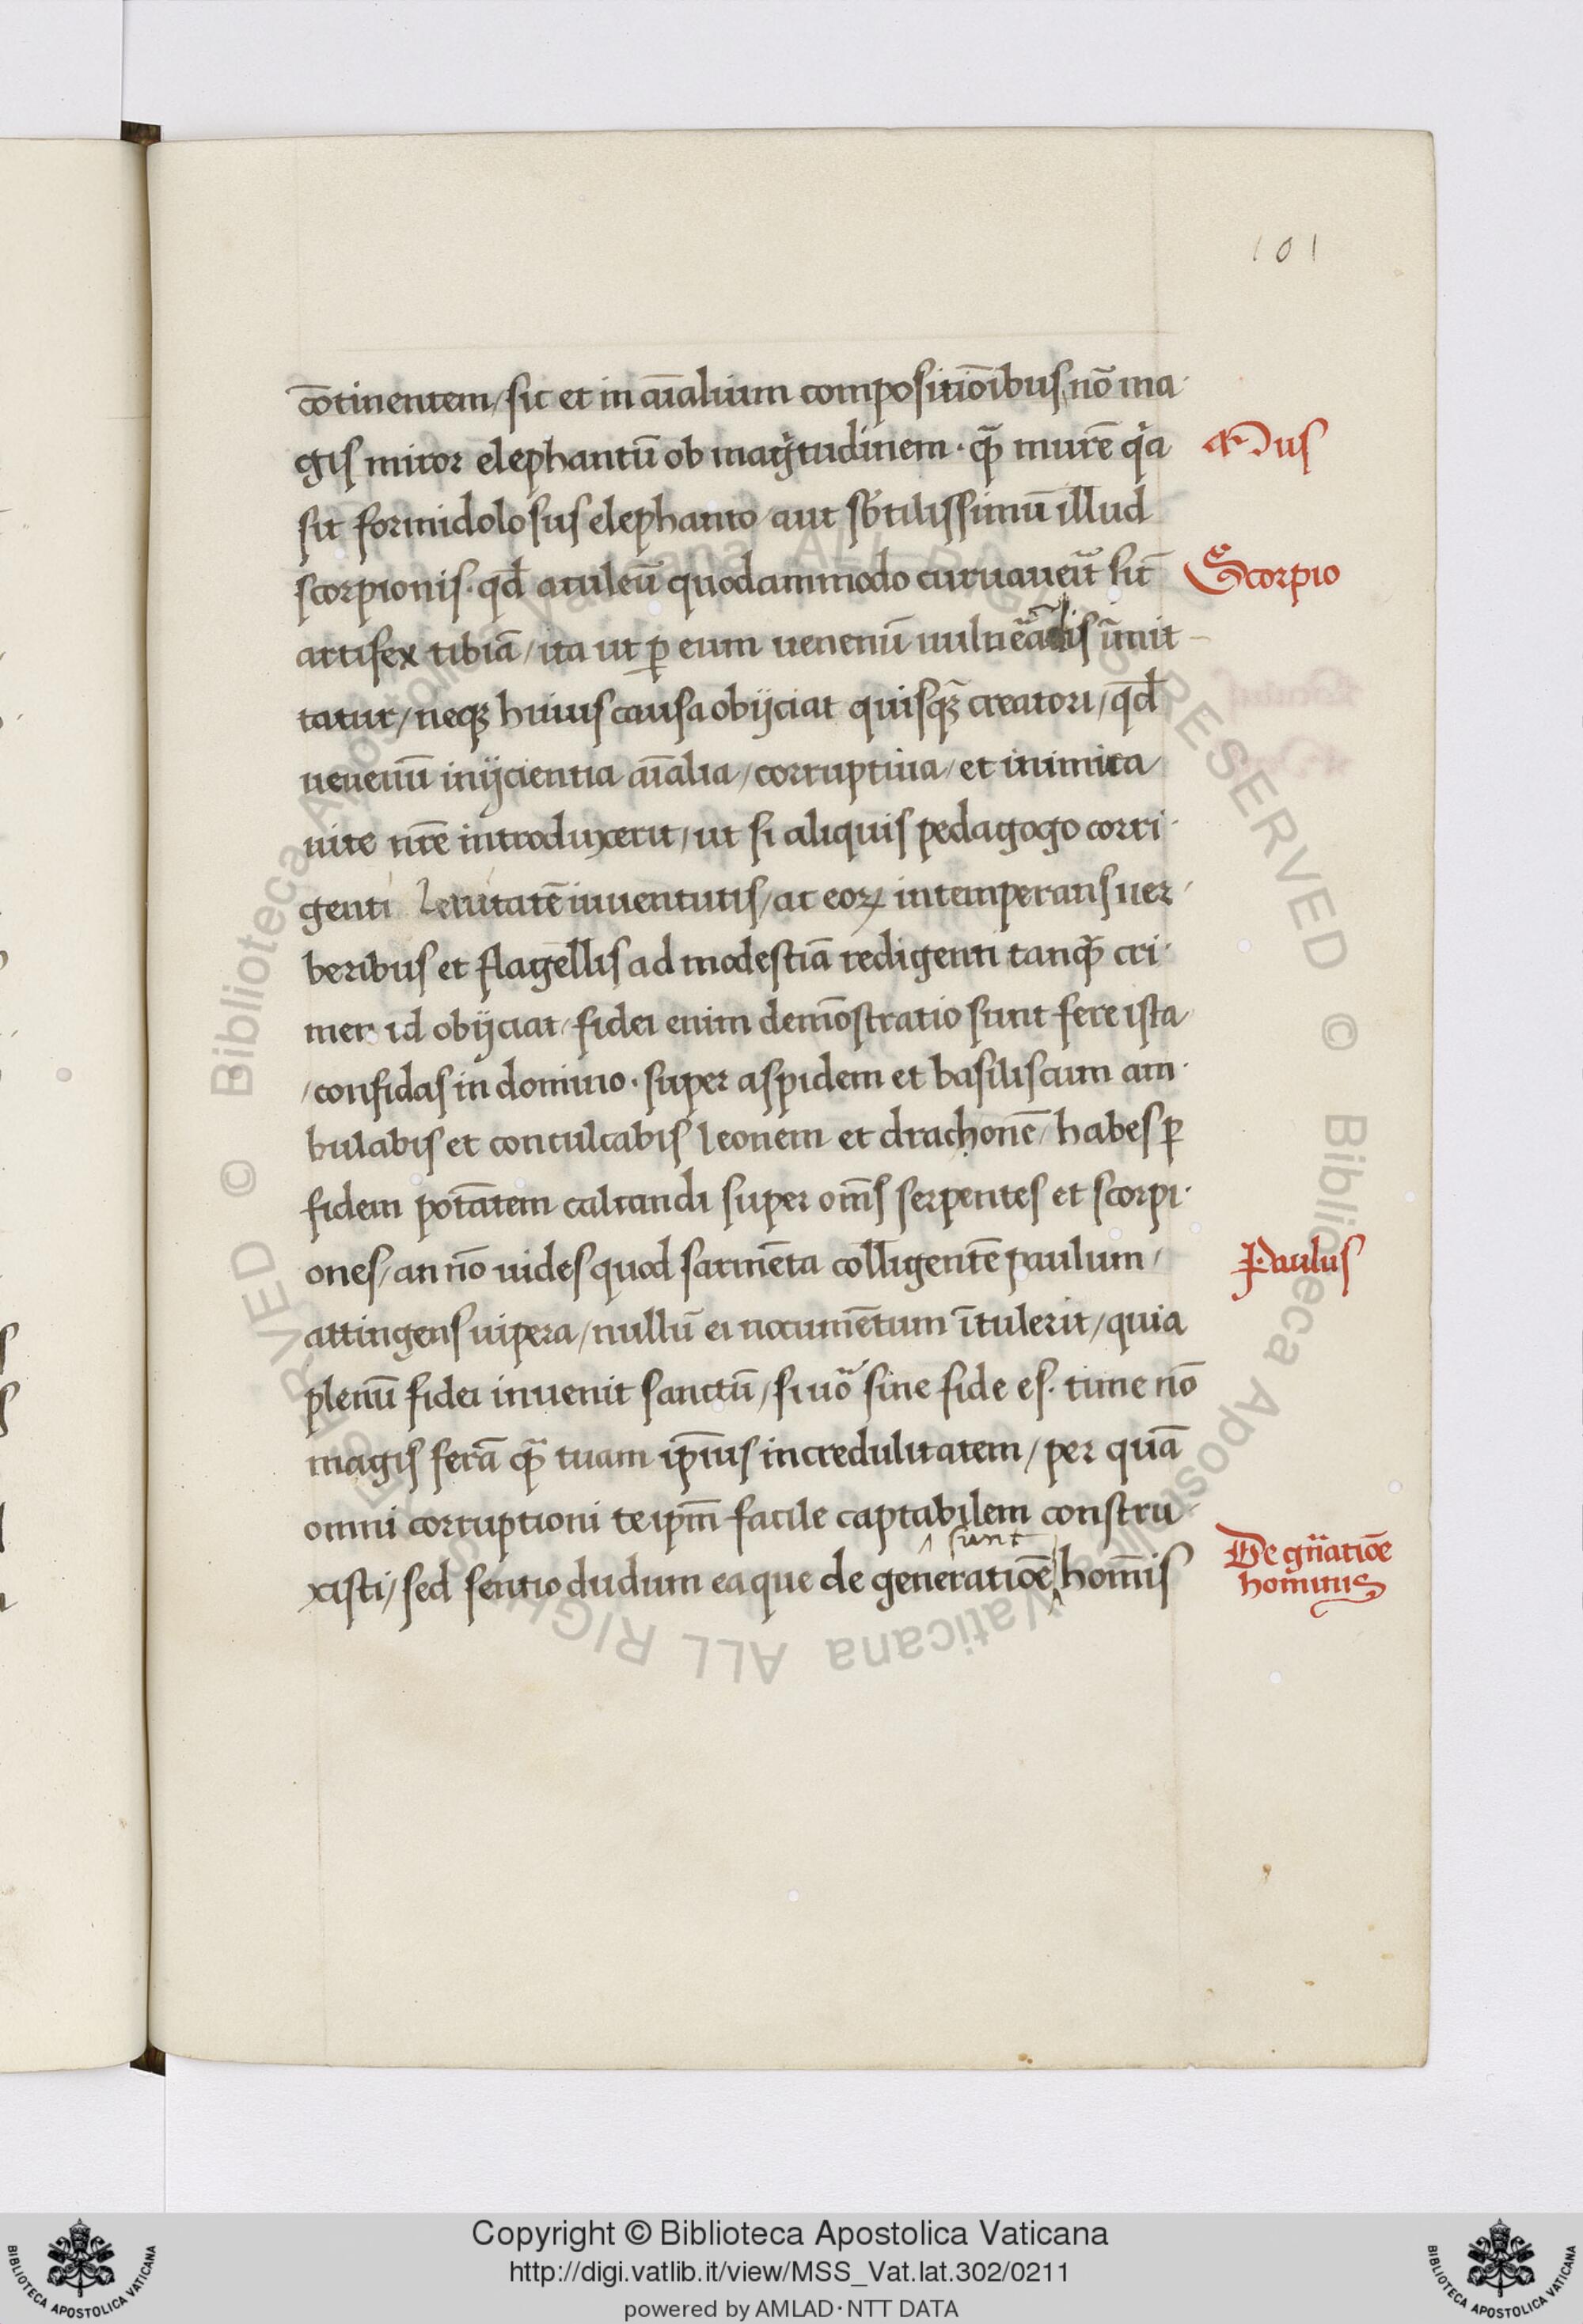 101
cōtinentem/sic et in aīalium compositiōibus nō ma·
gis miror elephantū ob magͥtudinem · qͣ̄ murē qͥa
Mus
sit formidolosus elephanto/aut sb̓tilissimū illud
scorpionis· qd̄ aculeū quodammodo curvaverit sic̄
Scorpio
artifex tibiā/ita ut ꝑ eum venenū īmit
tatur/neqꝫ huius causa obijciat quisqͣꝫ creatori/qd̄
venenū inijcientia aīalia/corruptiva/et inimica/
vite nr̄e introduxerit/ut si aliquis pedagogo corri·
genti levitatē iuventutis/ac eoꝝ intemperans ver/
beribus et flagellis ad modestiā redigenti tanqͣ̄ cri·
men id obijciat/fidei enim demōstratio sunt fere ista/
/confidas in domino · super aspidem et basiliscum am·
bulabis et conculcabis leonem et drachonē/habes ꝑ
fidem potātem calcandi super om̄s serpentes et scorpi·
ones/an nō vides quod sarmēta colligentē paulum/
Paulus
attingens vipera/nullū ei nocumētum ītulerit/quia
plenū fidei invenit sanctū/si vͦo sine fide es· time nō
magis ferā qͣ̄ tuam ip̄ius incredulitatem/per quā
omni corruptioni teip̄m facile captabilem constru/
sunt
xisti/sed sentio dudum ea que de generatiōe hom̄is
De gn̄atiōe
hominis
Copyright © Biblioteca Apostolica Vaticana
http://digi.vatlib.it/view/MSS_Vat.lat.302/0211
powered by AMLAD·NTT DATA
BIBLIOTECA APOSTOLICA VATICANA
BIBLIOTECA APOSTOLICA VATICANA
© Biblioteca Apostolica Vaticana ALL RIGHTS RESERVED © Biblioteca Apostolica Vaticana ALL RIGHTS RESERVED